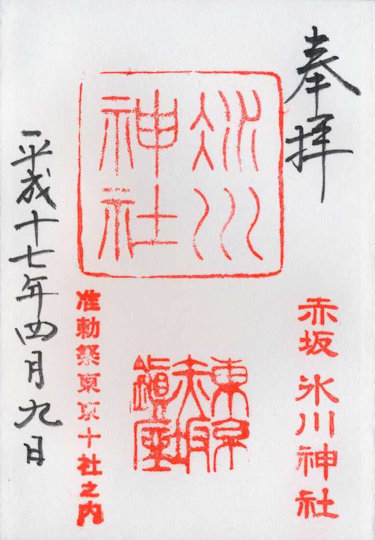 奉拝
赤坂氷川神社
氷川
神社
東京
赤坂
鎮座
准勅祭東京十社之内
平成十七年四月九日